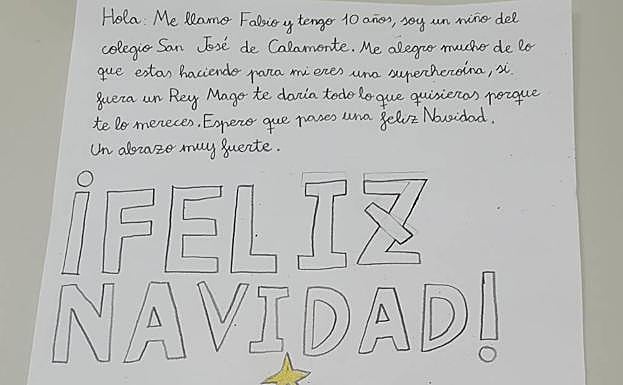 Hola: Me llamo Fabio y tengo 10 años, soy un niño del
colegio San José de Calamonte. Me alegro mucho de lo
que estas haciendo para mi eres una superheroína, si
fuera un Rey Mago te daría todo lo que quisieras porque
te lo mereces. Espero que pases una feliz Navidad.
Un abrazo muy fuerte.
¡FELIZ
NAVIDAD!